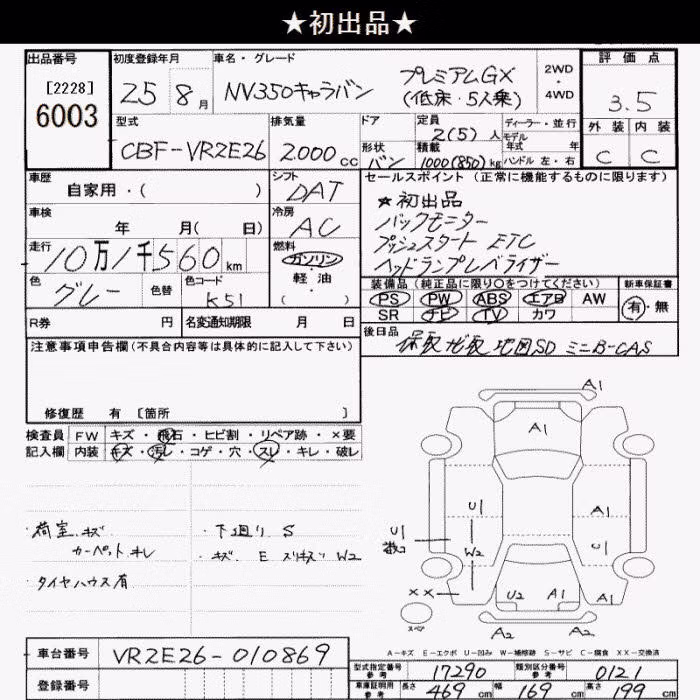 ★初出品★
出品番号 [2228] 6003
初度登録年月 25 8月
車名・グレード NV350キャラバン プレミアムGX (低床・5人乗) 2WD・4WD
評価点 3.5
外装 C 内装 C
型式 CBF-VR2E26
排気量 2000cc
ドア 形状 バン
定員 2(5)人
積載 1000(850)kg
ディーラー・並行
モデル年式 年
ハンドル 左・右
車歴 自家用・( )
シフト DAT
車検 年 月( 日)
冷房 AC
走行 10万1千560km
燃料 ガソリン・軽油・( )
色 グレー 色替 色コード K51
R券 円 名変通知期限 月 日
セールスポイント (正常に機能するものに限ります)
★初出品
バックモニター
プッシュスタート ETC
ヘッドランプレベライザー
装備品 (純正品に限り○をつけてください) 新車保証書
PS PW ABS エアB AW 有・無
SR ナビ TV カワ
後日品 保取 記取 地図SD ミニB-CAS
注意事項申告欄(不具合内容等は具体的に記入して下さい)
修復歴 有 [箇所 ]
検査員 FW キズ・飛石・ヒビ割・リペア跡・×要
記入欄 内装 キズ・汚レ・コゲ・穴・スレ・キレ・破レ
荷室.キズ ・下廻り S
カーペットキレ ・キズ. E スリキズ W2
タイヤハウス有
A1
A1
U1 A1
U1 W2 U1
××
U2 A1 A1
スペア
A2 A2
A-キズ E-エクボ U-凹み W-補修跡 S-サビ C-腐食 XX-交換済
車台番号 VR2E26-010869
登録番号
型式指定番号 参考 17290 類別区分番号 参考 0121
車庫証明用 参考 長さ 469cm 幅 169cm 高さ 199cm